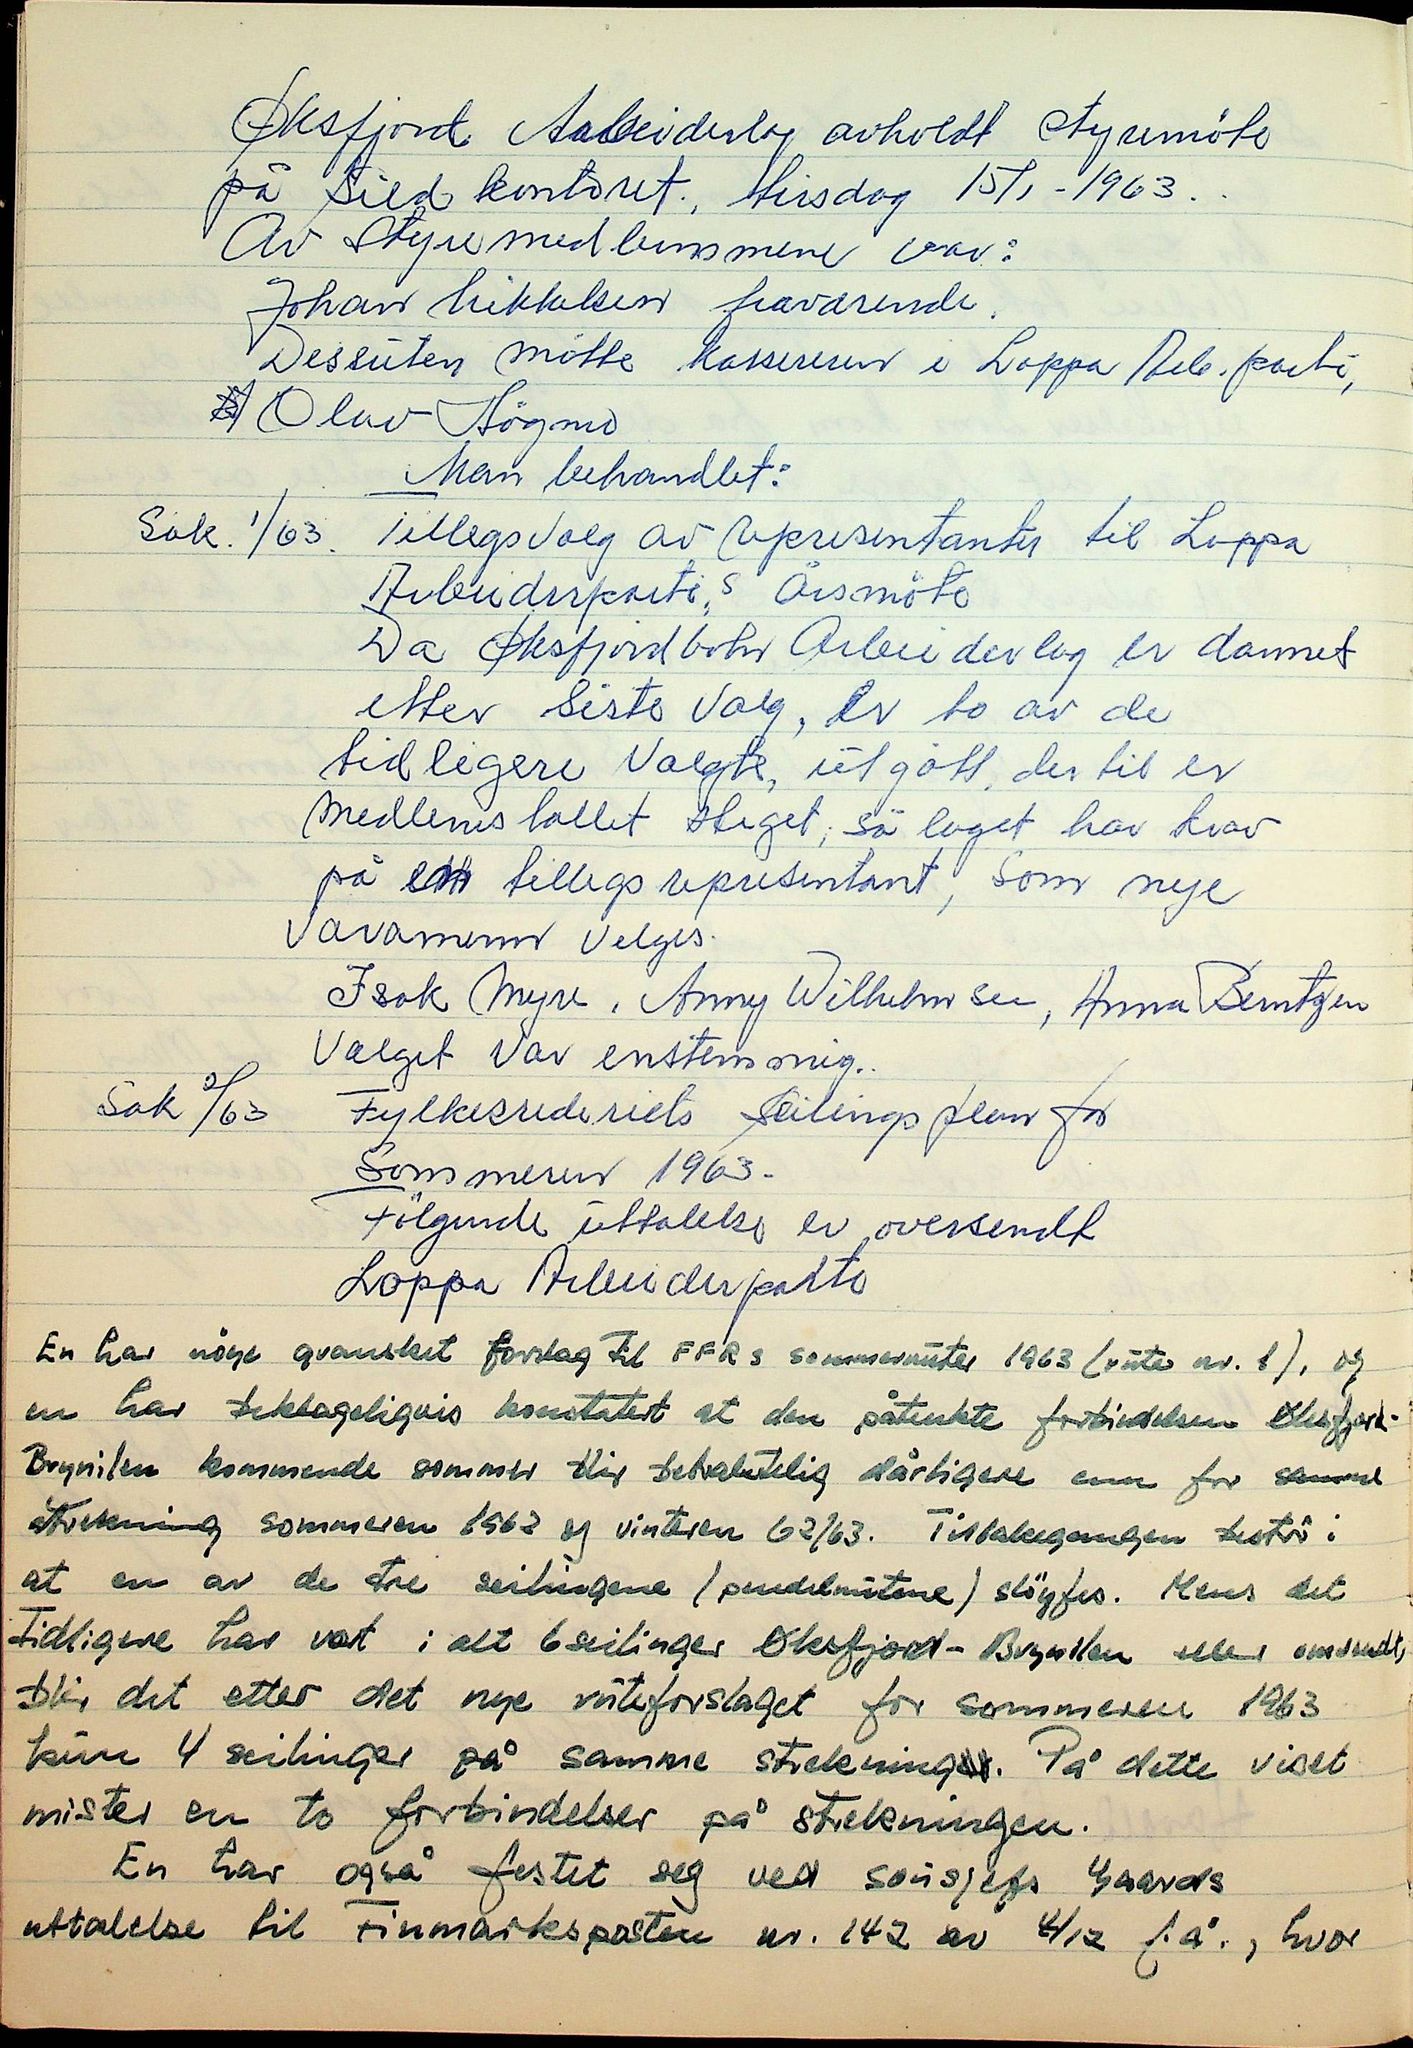 Øksfjord Arbeiderlag avholdt styremöte
på Sild kontoret., tirsdag 15/1 - 1963..
Av Styremedlemmene var:
Johan Mikkelsen fraværende.
Dessüten mötte kassereren i Loppa Arb. parti,
Olav Högmo
Man behandlet:
Sak. 1/63. Tillegsvalg av representanter til Loppa
Arbeiderparti,s Årsmöte
Da Øksfjordbotn Arbeiderlag er dannet
etter siste valg, er to av de
tidligere valgte, ütgått, der til er
medlemstallet steget, så laget har krav
på en tillegsrepresentant, som nye
varamenn velges.
Isak Myre, Anny Wilhelmsen, Anna Berntzen
Valget var enstemmig..
Sak 2/63 Fylkesrederiets Seilingsplan for
Sommeren 1963.
Fölgende üttalelse er oversendt
Loppa Arbeiderparti
En har nöye gransket forslag til FFRs sommerrüter 1963 (rüte nr. 1), og
en har beklageligvis konstatert at den påtenkte forbindelsen Øksfjord-
Bognilen kommende sommer blir betraktelig dårligere enn for samme
strekning sommeren 1962 og vinteren 62/63. Tilbakegangen består i
at en av de tre seilingene (pendelrütene) slöyfes. Mens det
tidligere har vært i alt 6 seilinger Øksfjord - Bognilen eller omvendt,
blir det etter det nye rüteforslaget for sommeren 1963
kün 4 seilinger på samme strekning. På dette viset
mister en to forbindelser på strekningen.
En har også festet seg ved soüsjefs
uttalelse til Finmarksposten nr. 142 av 4/12 f.å., hvor